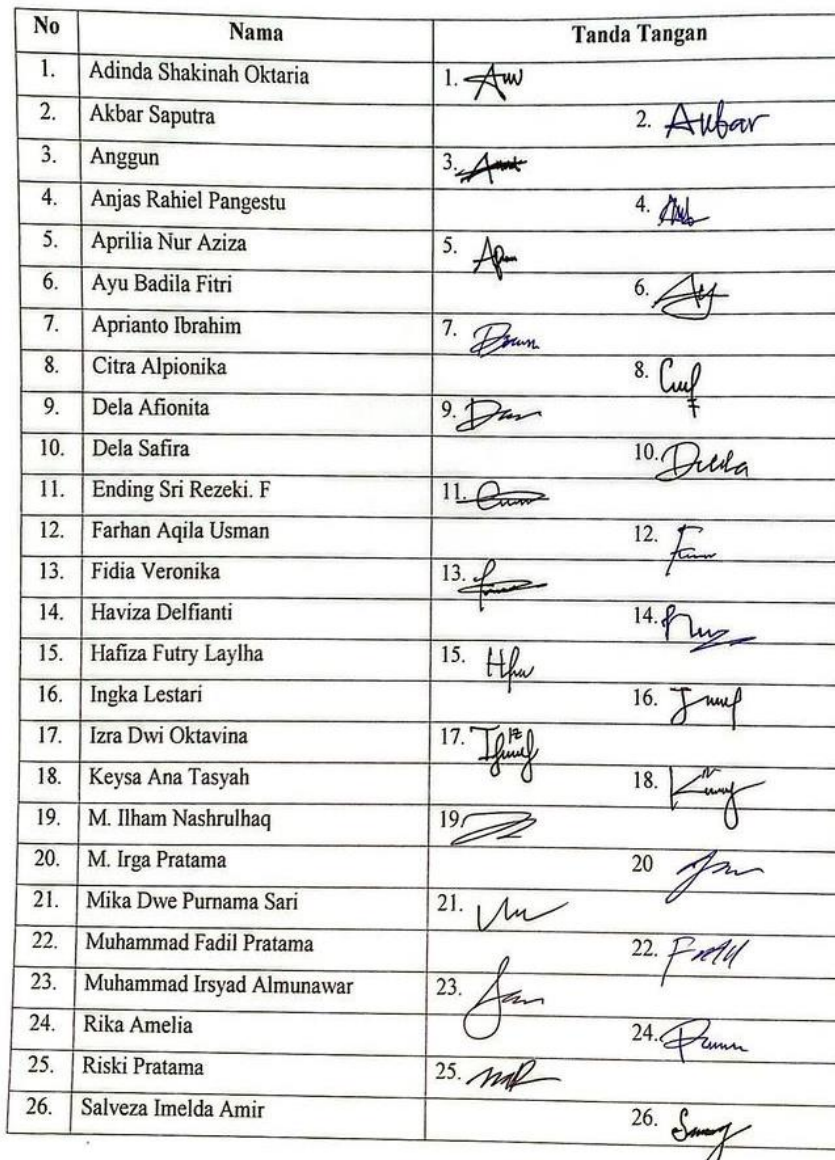 No Nama Tanda Tangan
1. Adinda Shakinah Oktaria 1.
2. Akbar Saputra 2. Akbar
3. Anggun 3.
4. Anjas Rahiel Pangestu 4.
5. Aprilia Nur Aziza 5.
6. Ayu Badila Fitri 6. Ay
7. Aprianto Ibrahim 7.
8. Citra Alpionika 8.
9. Dela Afionita 9.
10. Dela Safira 10.
11. Ending Sri Rezeki. F 11.
12. Farhan Aqila Usman 12.
13. Fidia Veronika 13.
14. Haviza Delfianti 14.
15. Hafiza Futry Laylha 15.
16. Ingka Lestari 16.
17. Izra Dwi Oktavina 17.
18. Keysa Ana Tasyah 18.
19. M. Ilham Nashrulhaq 19.
20. M. Irga Pratama 20
21. Mika Dwe Purnama Sari 21.
22. Muhammad Fadil Pratama 22.
23. Muhammad Irsyad Almunawar 23.
24. Rika Amelia 24.
25. Riski Pratama 25.
26. Salveza Imelda Amir 26.